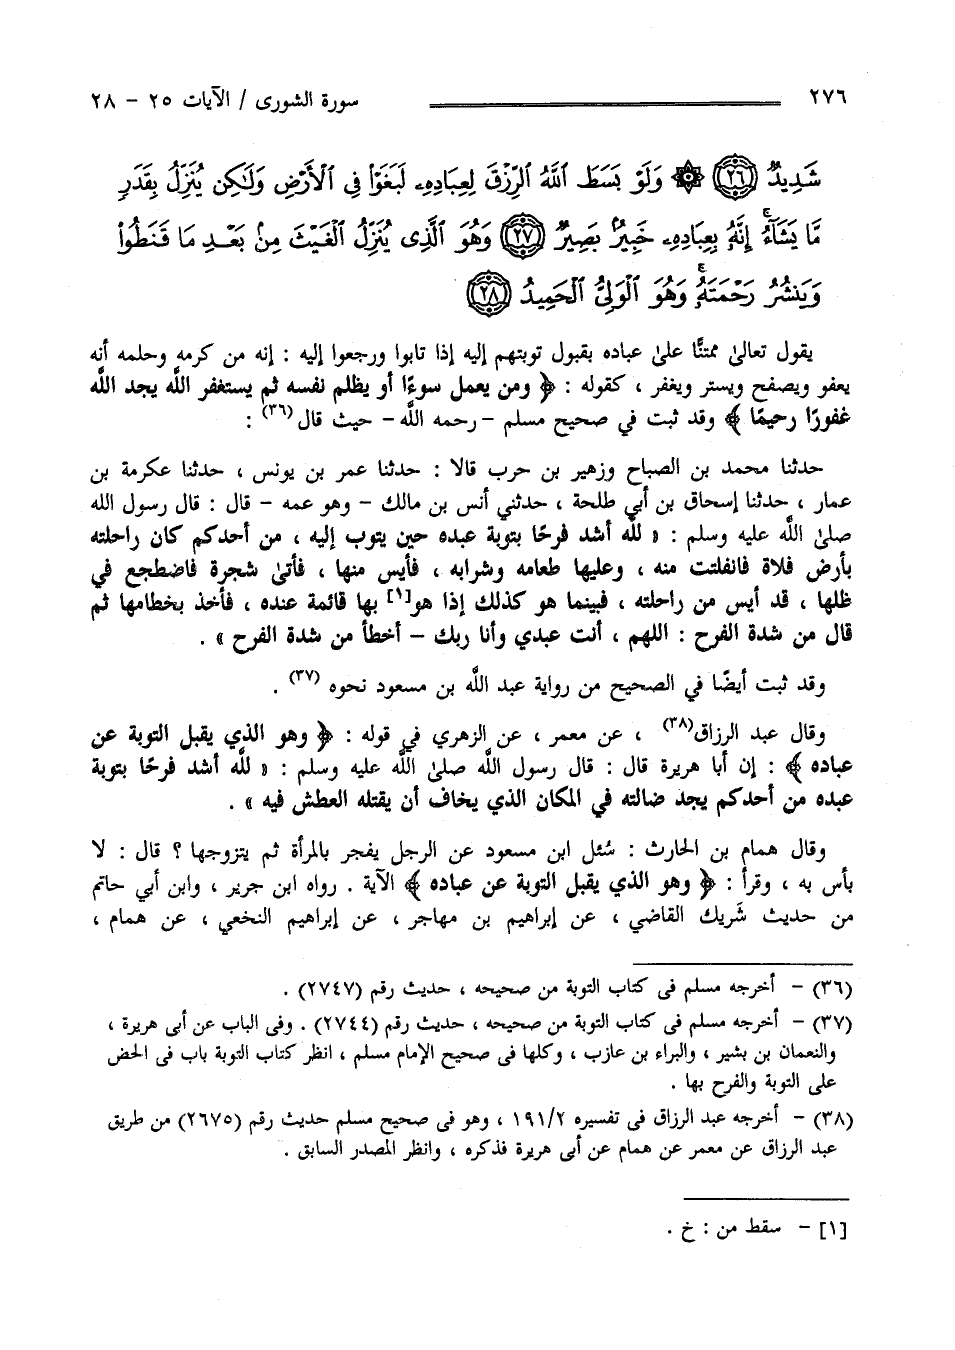 ٢٧٦ سورة الشورى / الآيات ٢٥ - ٢٨
شَدِيدٌ ٢٦ ۞ وَلَوْ بَسَطَ ٱللَّهُ ٱلرِّزْقَ لِعِبَادِهِۦ لَبَغَوْا۟ فِى ٱلْأَرْضِ وَلَـٰكِن يُنَزِّلُ بِقَدَرٍ
مَّا يَشَآءُ ۚ إِنَّهُۥ بِعِبَادِهِۦ خَبِيرٌۢ بَصِيرٌ ٢٧ وَهُوَ ٱلَّذِى يُنَزِّلُ ٱلْغَيْثَ مِنۢ بَعْدِ مَا قَنَطُوا۟
وَيَنشُرُ رَحْمَتَهُۥ ۚ وَهُوَ ٱلْوَلِىُّ ٱلْحَمِيدُ ٢٨
يقول تعالىٰ ممتنًّا علىٰ عباده بقبول توبتهم إليه إذا تابوا ورجعوا إليه : إنه من كرمه وحلمه أنه
يعفو ويصفح ويستر ويغفر ، كقوله : ﴿ ومن يعمل سوءًا أو يظلم نفسه ثم يستغفر اللَّه يجد اللَّه
غفورًا رحيمًا ﴾ وقد ثبت في صحيح مسلم - رحمه اللَّه - حيث قال (٣٦) :
حدثنا محمد بن الصباح وزهير بن حرب قالا : حدثنا عمر بن يونس ، حدثنا عكرمة بن
عمار ، حدثنا إسحاق بن أبي طلحة ، حدثني أنس بن مالك - وهو عمه - قال : قال رسول الله
صلىٰ اللَّه عليه وسلم : « للَّه أشد فرحًا بتوبة عبده حين يتوب إليه ، من أحدكم كان راحلته
بأرض فلاة فانفلتت منه ، وعليها طعامه وشرابه ، فأيس منها ، فأتىٰ شجرة فاضطجع في
ظلها ، قد أيس من راحلته ، فبينما هو كذلك إذا هو[١] بها قائمة عنده ، فأخذ بخطامها ثم
قال من شدة الفرح : اللهم ، أنت عبدي وأنا ربك - أخطأ من شدة الفرح » .
وقد ثبت أيضًا في الصحيح من رواية عبد اللَّه بن مسعود نحوه (٣٧) .
وقال عبد الرزاق(٣٨) ، عن معمر ، عن الزهري في قوله : ﴿ وهو الذي يقبل التوبة عن
عباده ﴾ : إن أبا هريرة قال : قال رسول اللَّه صلىٰ اللَّه عليه وسلم : « للَّه أشد فرحًا بتوبة
عبده من أحدكم يجد ضالته في المكان الذي يخاف أن يقتله العطش فيه » .
وقال همام بن الحارث : سُئل ابن مسعود عن الرجل يفجر بالمرأة ثم يتزوجها ؟ قال : لا
بأس به ، وقرأ : ﴿ وهو الذي يقبل التوبة عن عباده ﴾ الآية . رواه ابن جرير ، وابن أبي حاتم
من حديث شَريك القاضي ، عن إبراهيم بن مهاجر ، عن إبراهيم النخعي ، عن همام ،
(٣٦) - أخرجه مسلم فى كتاب التوبة من صحيحه ، حديث رقم (٢٧٤٧) .
(٣٧) - أخرجه مسلم فى كتاب التوبة من صحيحه ، حديث رقم (٢٧٤٤) . وفى الباب عن أبى هريرة ،
والنعمان بن بشير ، والبراء بن عازب ، وكلها فى صحيح الإمام مسلم ، انظر كتاب التوبة باب فى الحض
على التوبة والفرح بها .
(٣٨) - أخرجه عبد الرزاق فى تفسيره ١٩١/٢ ، وهو فى صحيح مسلم حديث رقم (٢٦٧٥) من طريق
عبد الرزاق عن معمر عن همام عن أبى هريرة فذكره ، وانظر المصدر السابق .
[١] - سقط من : خ .